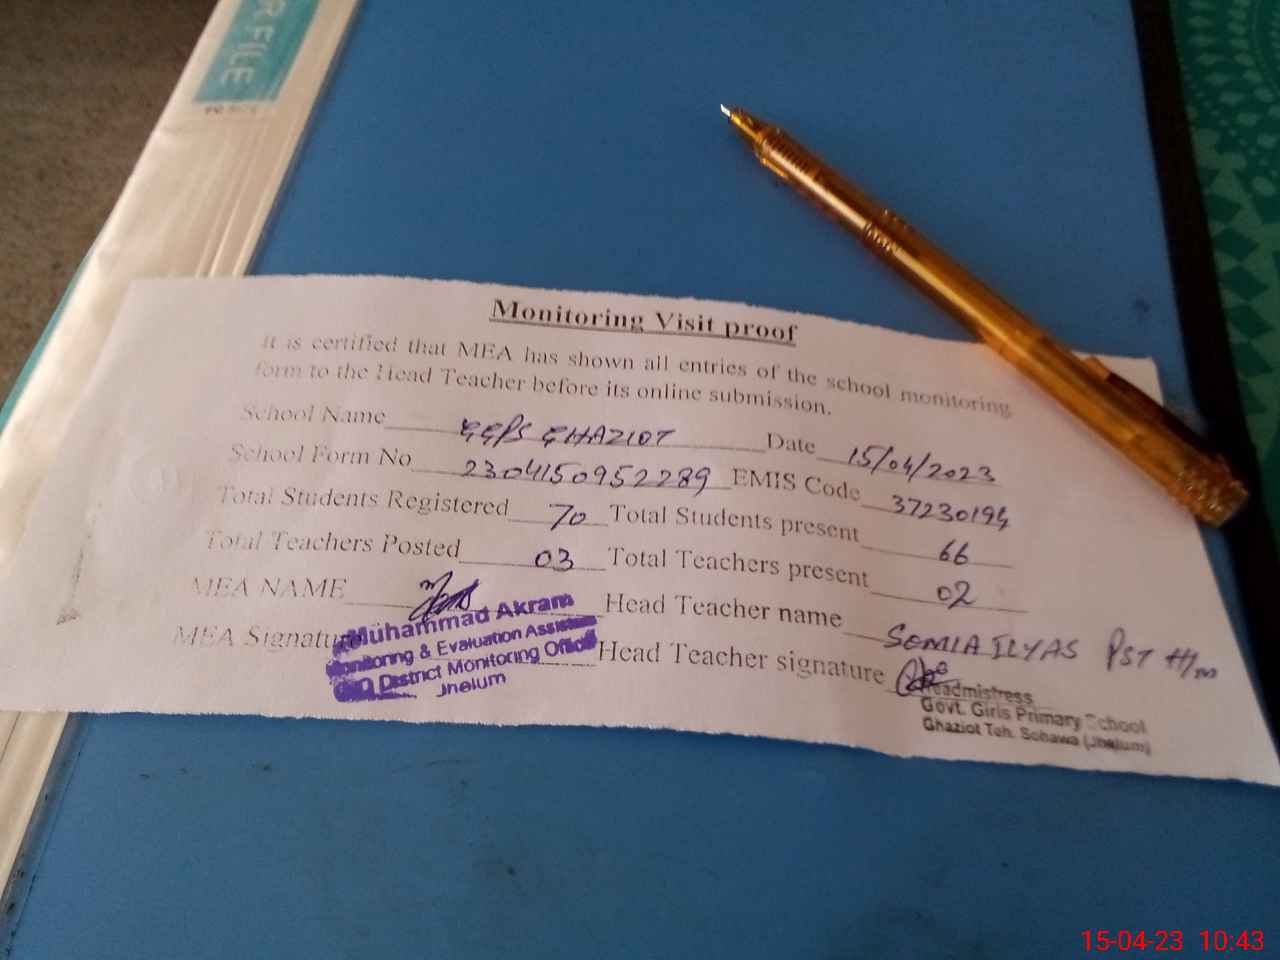 R FILE
Monitoring Visit proof
It is certified that MEA has shown all entries of the school monitoring
form to the Head Teacher before its online submission.
School Name GGPS GHAZIOT Date 15/04/2023
School Form No 2304150952289 EMIS Code 37230194
Total Students Registered 70 Total Students present 66
Total Teachers Posted 03 Total Teachers present 02
MEA NAME Head Teacher name SOMIA ILYAS PST H/m
MEA Signature Head Teacher signature
Muhammad Akram
Monitoring & Evaluation Assistant
District Monitoring Office
Jhelum
Headmistress
Govt. Girls Primary School
Ghaziot Teh. Sohawa (Jhelum)
15-04-23 10:43